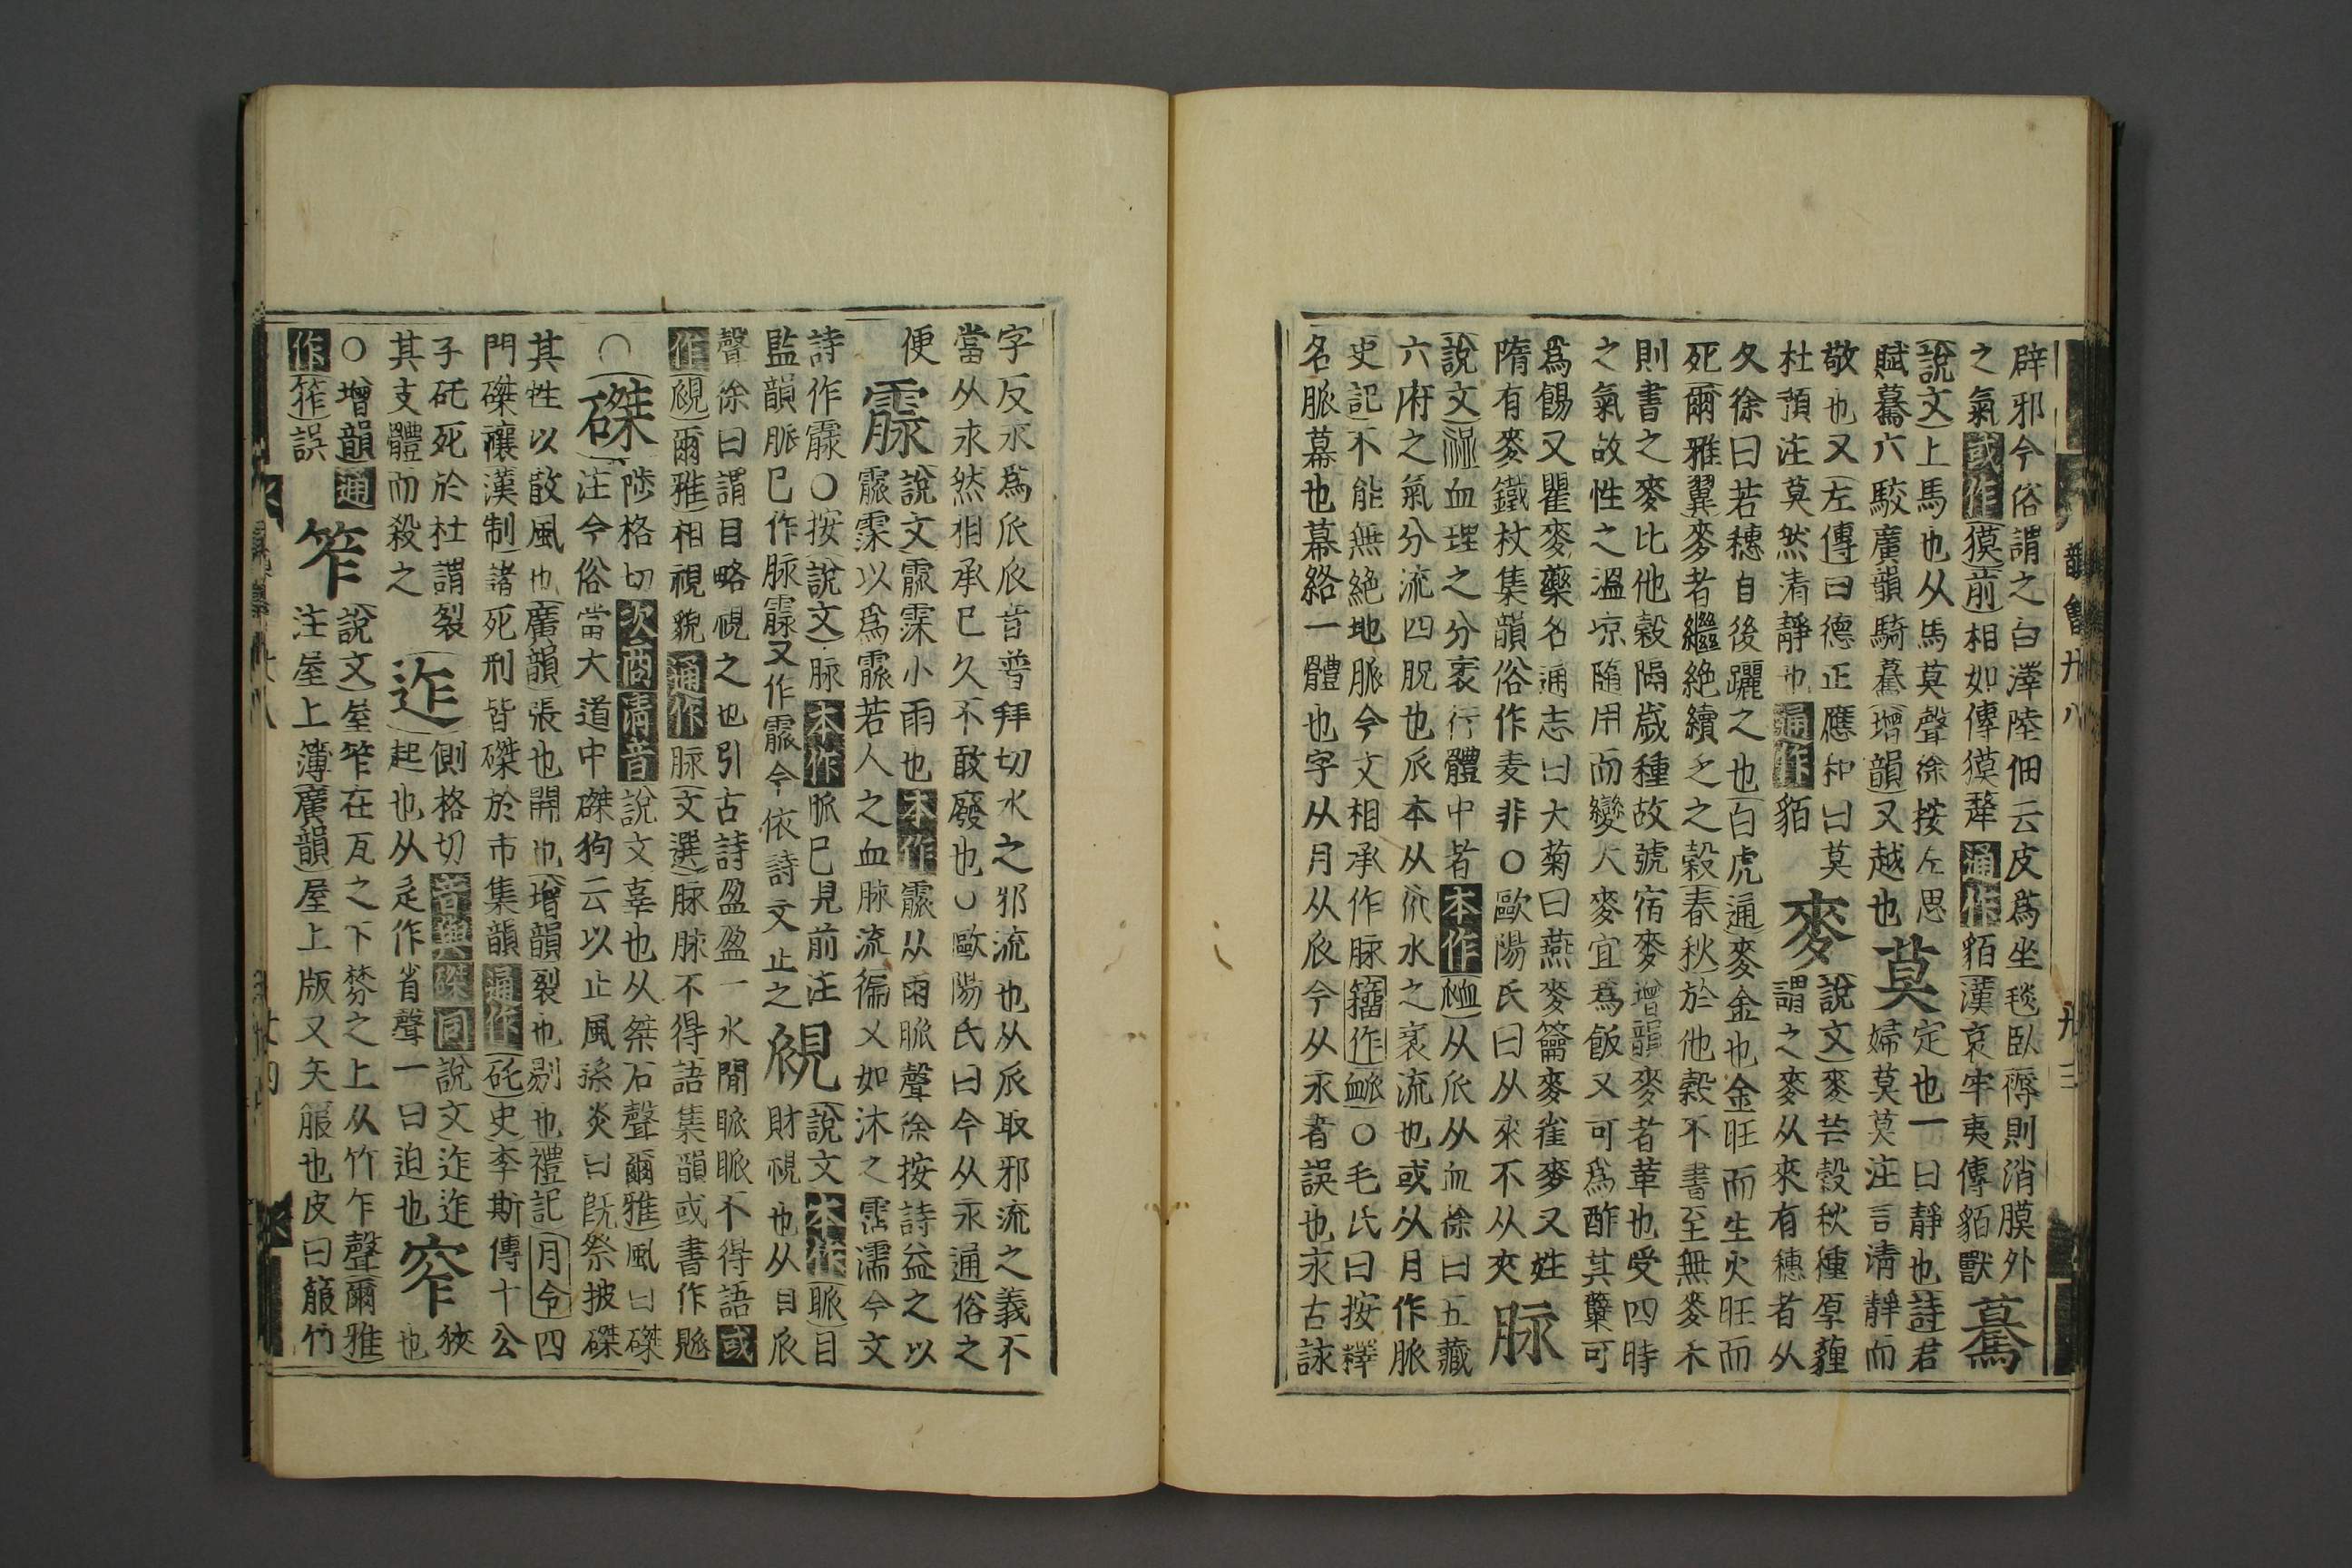 辟邪今俗謂之白澤陸佃云皮爲坐毯臥褥則消膜外
之氣或作獏前相如傳獏犛通作貊漢哀牢夷傳貊獸
驀
說文上馬也从馬莫聲徐按左思
賦驀六駮廣韻騎驀增韻又越也
莫
定也一曰靜也詩君
婦莫莫注言清靜而
敬也又左傳曰德正應和曰莫
杜預注莫然清靜也通作貊
麥
說文麥芒穀秋種厚薶
謂之麥从來有穗者从
夂徐曰若穗自後躧之也白虎通麥金也金旺而生火旺而
死爾雅翼麥者繼絕續乏之穀春秋於他穀不書至無麥禾
則書之麥比他穀隔歲種故號宿麥增韻麥者革也受四時
之氣故性之溫凉隨用而變大麥宜爲飯又可爲酢其糵可
爲餳又瞿麥藥名通志曰大菊曰燕麥籥麥雀麥又姓
隋有麥鐵杖集韻俗作麦非○歐陽氏曰从來不从夾
脉
說文血理之分衺行體中者本作从𠂢从血徐曰五藏
六府之氣分流四脱也𠂢本从水之衺流也或从月作脈
史記不能無絕地脈今文相承作脉籀作衇○毛氏曰按釋
名脈幕也幕絡一體也字从月从𠂢今从永者誤也永古詠
字反永爲𠂢𠂢音普拜切水之邪流也从𠂢取邪流之義不
當从永然相承已久不敢廢也○歐陽氏曰今从永通俗之
便
霢
說文霢霂小雨也本作霢从雨脈聲徐按詩益之以
霢霂以爲霢若人之血脉流徧又如沐之霑濡今文
詩作霢○按說文脉本作脈已見前注
監韻脈已作脉又作霢今依詩文正之
覛
說文本作䀮目
財視也从目𠂢
聲徐曰謂目略視之也引古詩盈盈一水間䀮䀮不得語或
作覛爾雅相視貌通作脉文選脉脉不得語集韻或書作
○
磔
陟格切次商清音說文辜也从桀石聲爾雅風曰磔
注今俗當大道中磔狗云以止風孫炎曰旣祭披磔
其牲以散風也廣韻張也開也增韻裂也剔也禮記月令四
門磔禳漢制諸死刑皆磔於市集韻通作矺史李斯傳十公
子矺死於杜謂裂
其支體而殺之
迮
側格切音與磔同說文迮迮
起也从辵作省聲一曰迫也
窄
狹
也
○增韻通
作筰誤
笮
說文屋笮在瓦之下棼之上从竹乍聲爾雅
注屋上簿廣韻屋上版又矢箙也皮曰箙竹